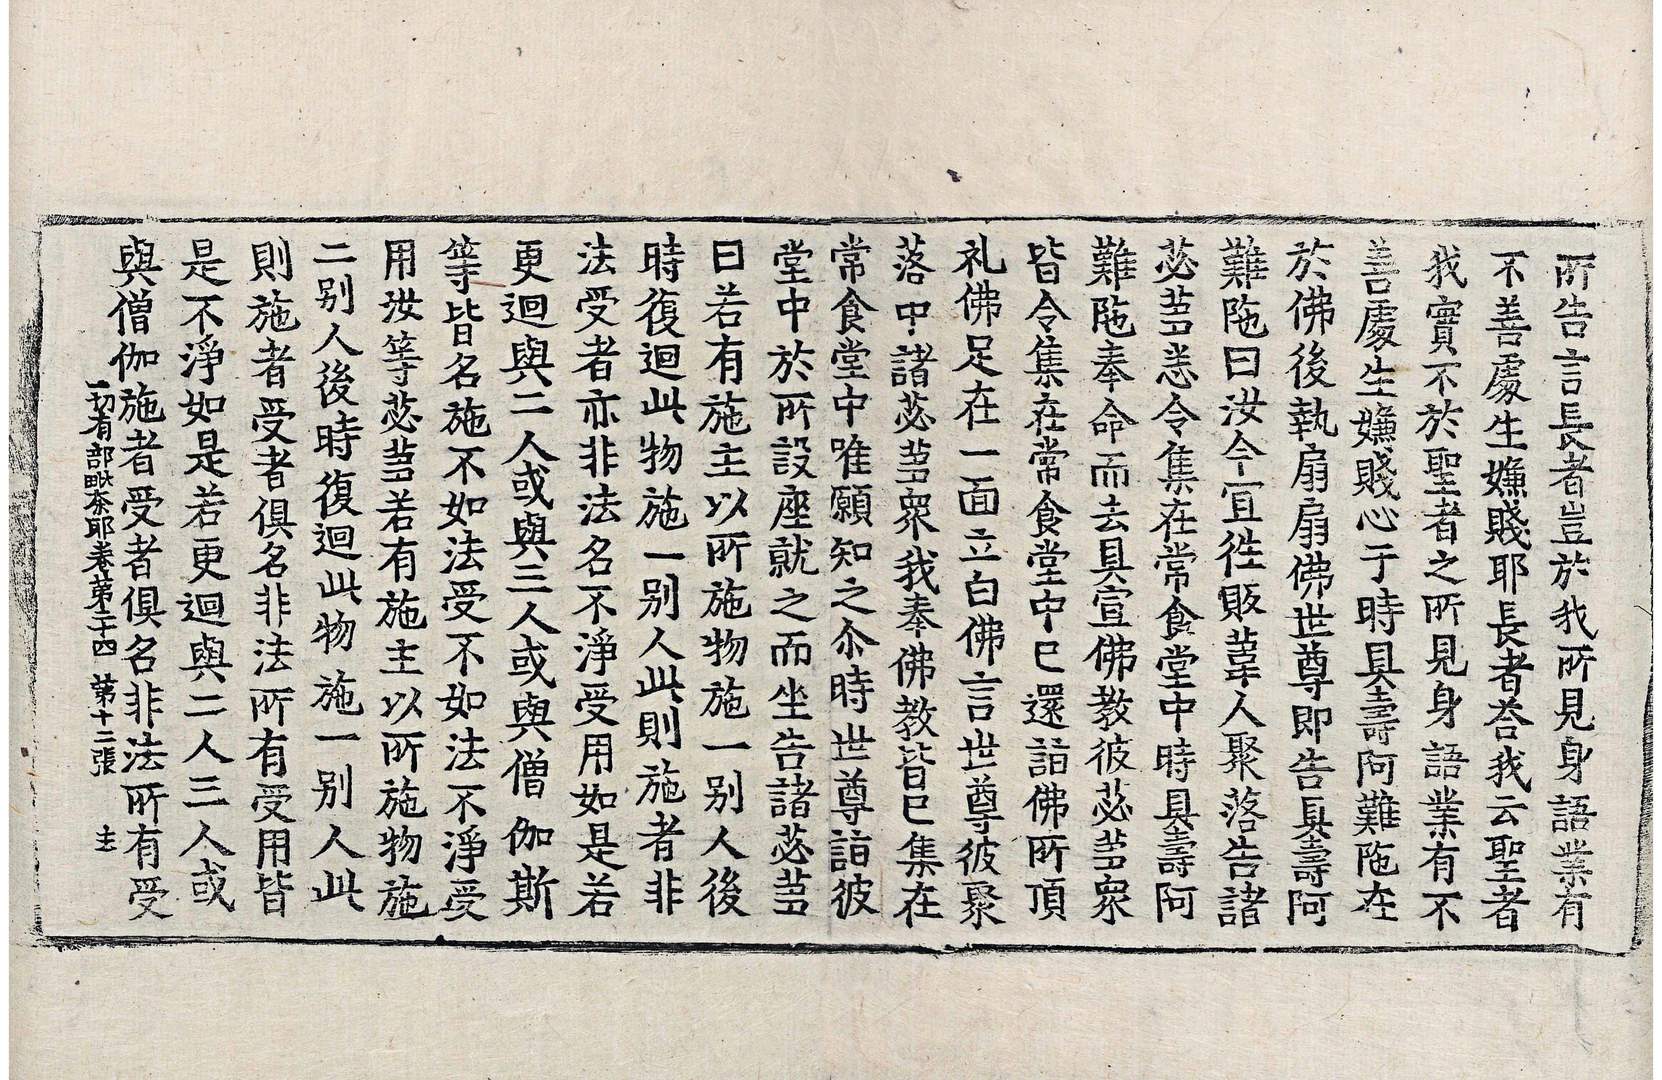 所告言長者豈於我所見身語業有
不善處生嫌賤耶長者荅我云聖者
我實不於聖者之所見身語業有不
善處生嫌賤心于時具壽阿難陁在
於佛後執扇扇佛世尊即告具壽阿
難陁曰汝今宜徃販葦人聚落告諸
苾芻悉令集在常食堂中時具壽阿
難陁奉命而去具宣佛教彼苾芻衆
皆令集在常食堂中已還詣佛所頂
礼佛足在一面立白佛言世尊彼聚
落中諸苾芻衆我奉佛教皆已集在
常食堂中唯願知之尒時世尊詣彼
堂中於所設座就之而坐告諸苾芻
曰若有施主以所施物施一別人後
時復迴此物施一別人此則施者非
法受者亦非法名不淨受用如是若
更迴與二人或與三人或與僧伽斯
等皆名施不如法受不如法不淨受
用汝等苾芻若有施主以所施物施
二別人後時復迴此物施一別人此
則施者受者俱名非法所有受用皆
是不淨如是若更迴與二人三人或
與僧伽施者受者俱名非法所有受
一切有部毗奈耶卷第二十四 第十二張 圭